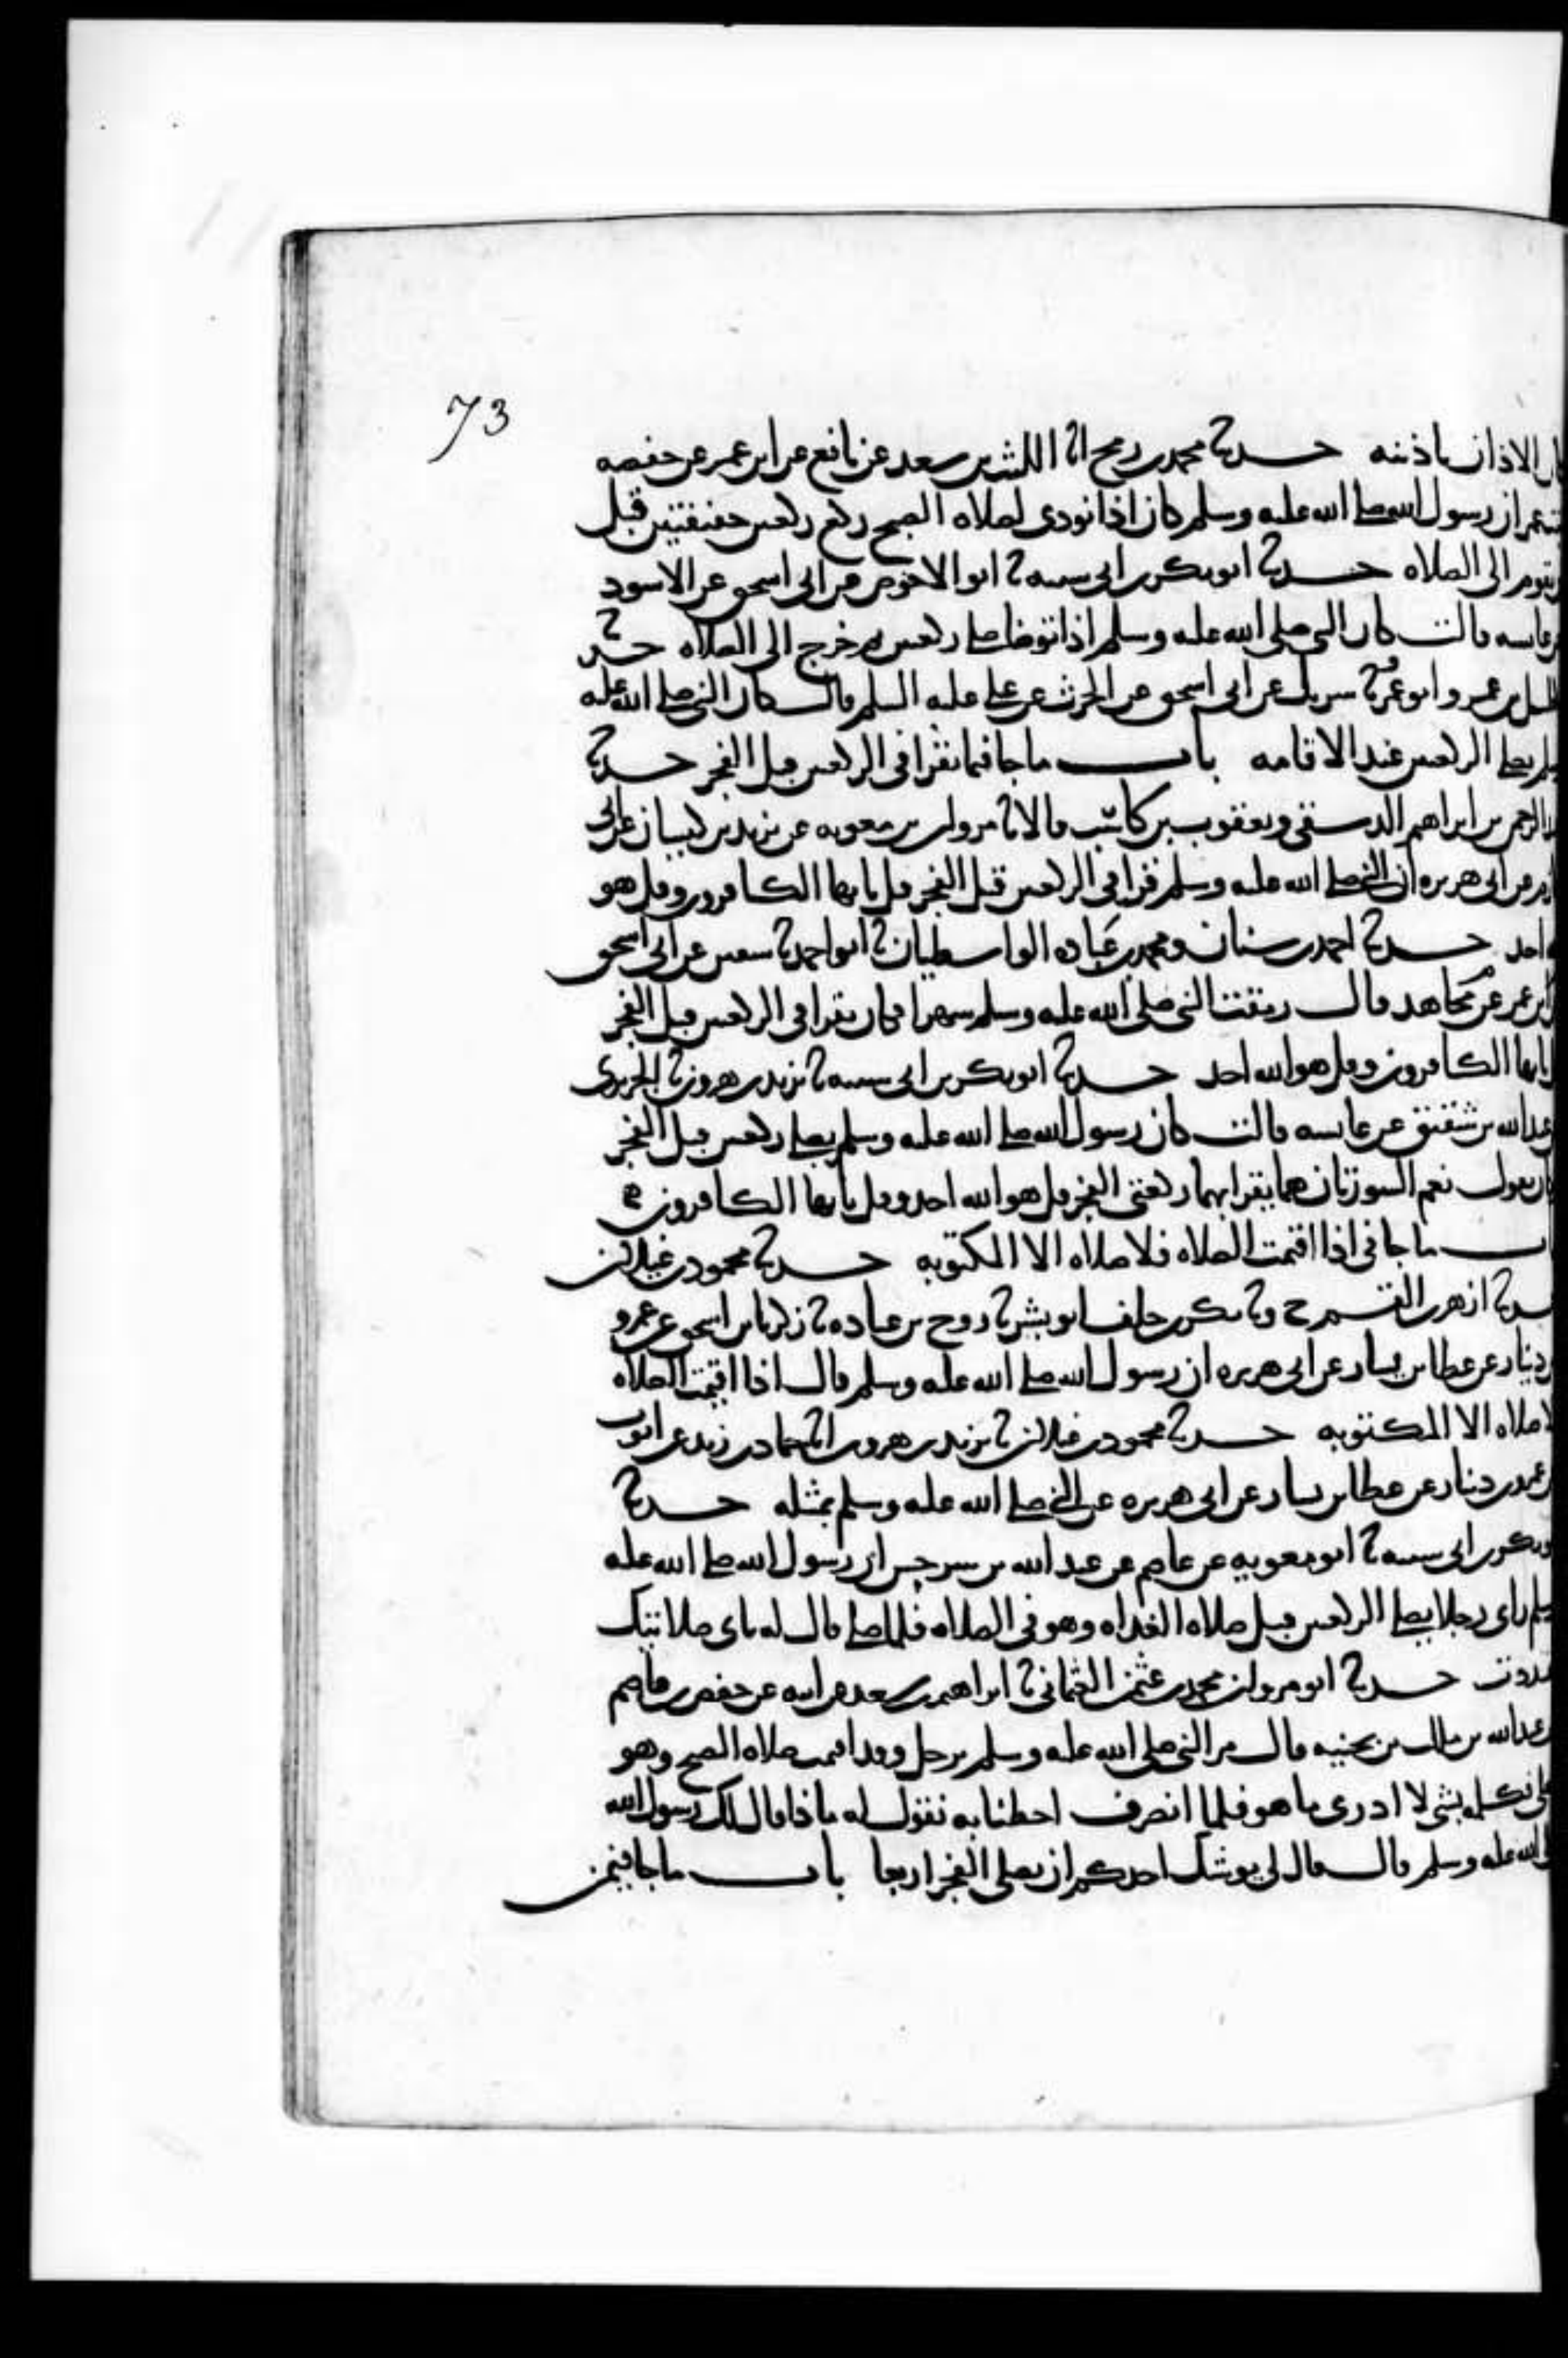 73
الاذان باذنيه حدثنا محمد بن رمح انا الليث بن سعد عن نافع عن ابن عمر عن حفصه
ان رسول الله صلى الله عليه وسلم كان اذا نودى لصلاه الصبح ركع ركعتين خفيفتين قبل
يقوم الى الصلاه حدثنا ابو بكر بن ابى شيبه نا ابو الاحوص عن ابى اسحق عن الاسود
عايشه قالت كان النبى صلى الله عليه وسلم اذا توضا صلى ركعتين ثم خرج الى الصلاه حدثنا
الخليل بن عمرو ابو عمرو نا شريك عن ابى اسحق عن الحرث عن على عليه السلم قال كان النبى صلى الله عليه
يصلى الركعتين عند الاقامه باب ما جا فيما يقرا فى الركعتين قبل الفجر حدثنا
الرحمن بن ابراهيم الدمشقى ويعقوب بن كاسب قالا نا مروان بن معويه عن يزيد بن كيسان عن ابى
عن ابى هريره ان النبى صلى الله عليه وسلم قرا فى الركعتين قبل الفجر قل يا ايها الكافرون وقل هو
احد حدثنا احمد بن سنان ومحمد بن عباده الواسطيان نا ابو احمد نا سفين عن ابى اسحق
ابن عمر عن مجاهد قال رمقت النبى صلى الله عليه وسلم شهرا فكان يقرا فى الركعتين قبل الفجر
يا ايها الكافرون وقل هو الله احد حدثنا ابو بكر بن ابى شيبه نا يزيد بن هرون نا الجريرى
عبد الله بن شقيق عن عايشه قالت كان رسول الله صلى الله عليه وسلم يصلى ركعتين قبل الفجر
يقول نعم السورتان هما يقرا بهما ركعتى الفجر قل هو الله احد وقل يا ايها الكافرون
ما جا فى اذا اقيمت الصلاه فلا صلاه الا المكتوبه حدثنا محمود بن غيلان
ازهر بن القسم ح ونا بكر بن خلف ابو بشر نا روح بن عباده نا زكريا بن اسحق عن عمرو
دينار عن عطا بن يسار عن ابى هريره ان رسول الله صلى الله عليه وسلم قال اذا اقيمت الصلاه
صلاه الا المكتوبه حدثنا محمود بن غيلان نا يزيد بن هرون انا حماد بن زيد عن ايوب
عمرو بن دينار عن عطا بن يسار عن ابى هريره عن النبى صلى الله عليه وسلم بمثله حدثنا
بكر بن ابى شيبه نا ابو معويه عن عاصم عن عبد الله بن سرجس ان رسول الله صلى الله عليه
راى رجلا يصلى الركعتين قبل صلاه الغداه وهو فى الصلاه فلما صلى قال له باى صلاتيك
اعتددت حدثنا ابو مروان محمد بن عثمن العثمانى نا ابراهيم بن سعد عن ابيه عن حفص بن عاصم
عبد الله بن ملك بن بحينه قال مر النبى صلى الله عليه وسلم برجل وقد اقيمت صلاه الصبح وهو
فكلمه بشى لا ادرى ما هو فلما انصرف احطنا به نقول له ماذا قال لك رسول الله
الله عليه وسلم قال قال لى يوشك احدكم ان يصلى الفجر اربعا باب ما جا فيمن